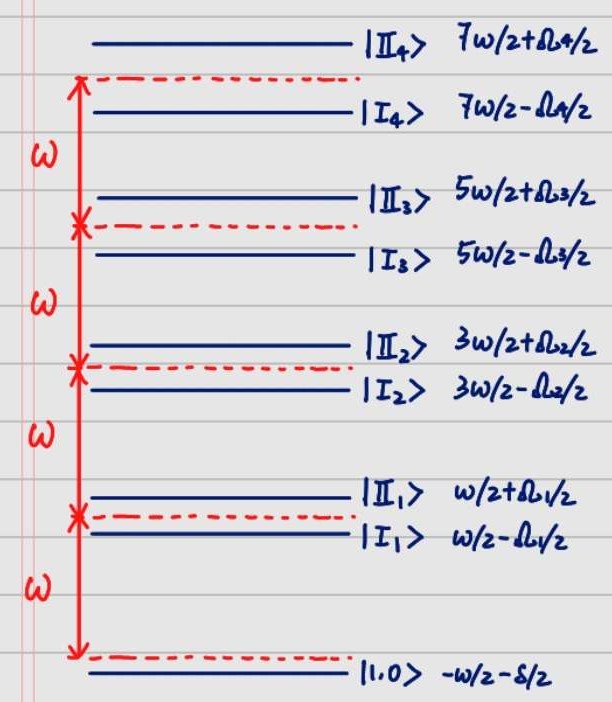 |II₄> 7ω/2+Ω₄/2
|I₄> 7ω/2-Ω₄/2
ω
|II₃> 5ω/2+Ω₃/2
|I₃> 5ω/2-Ω₃/2
ω
|II₂> 3ω/2+Ω₂/2
|I₂> 3ω/2-Ω₂/2
ω
|II₁> ω/2+Ω₁/2
|I₁> ω/2-Ω₁/2
ω
|1,0> -ω/2-δ/2